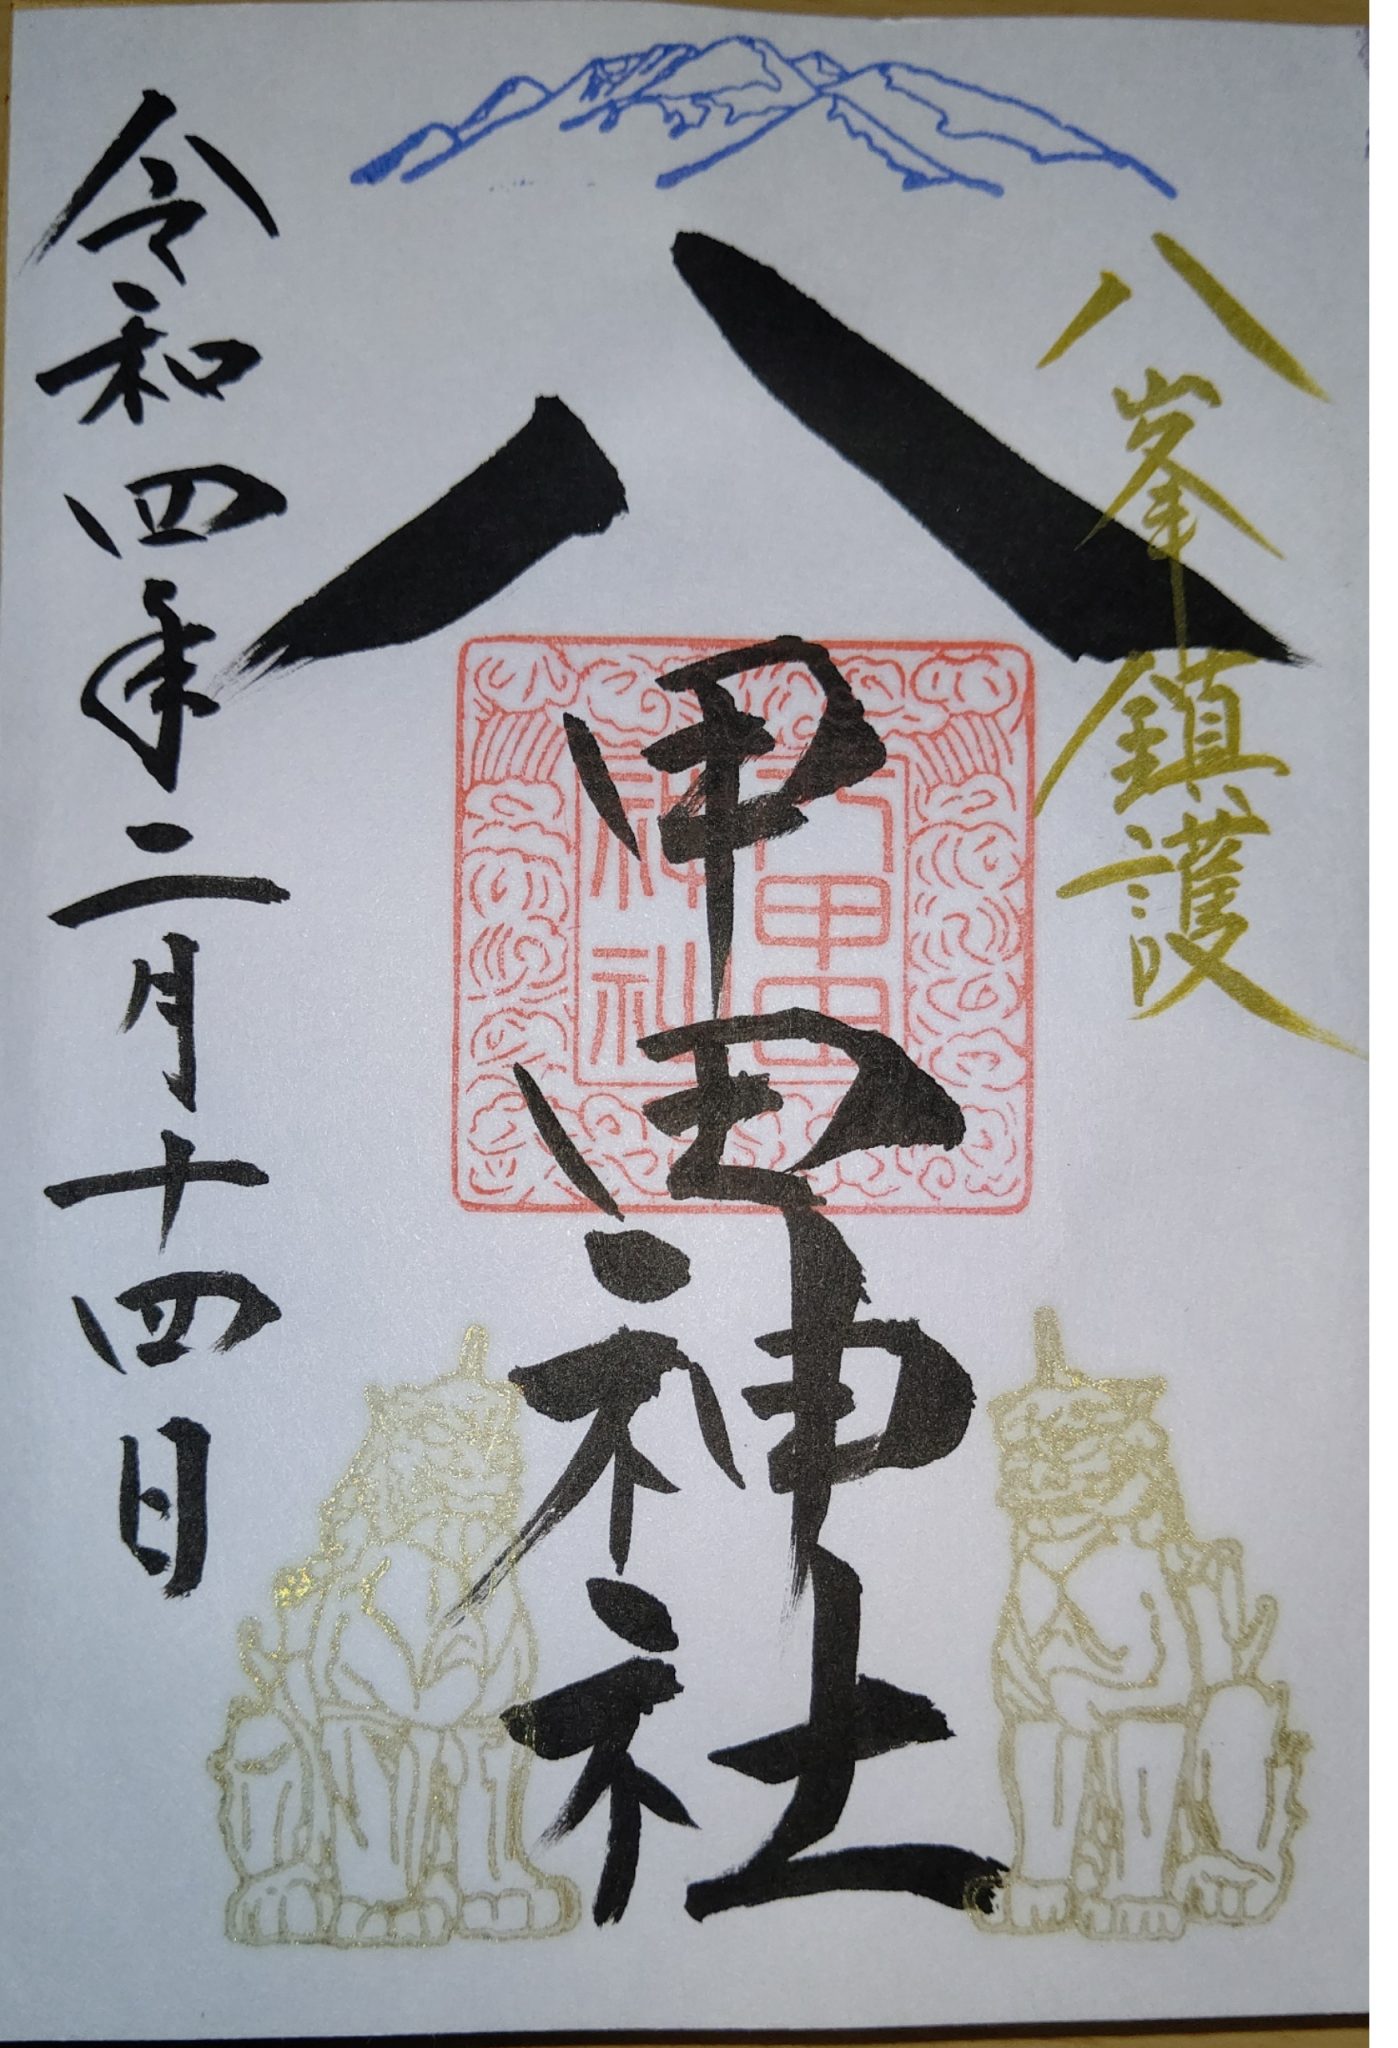 八峯鎮護
八甲田神社
八甲田
神社
令和四年二月十四日